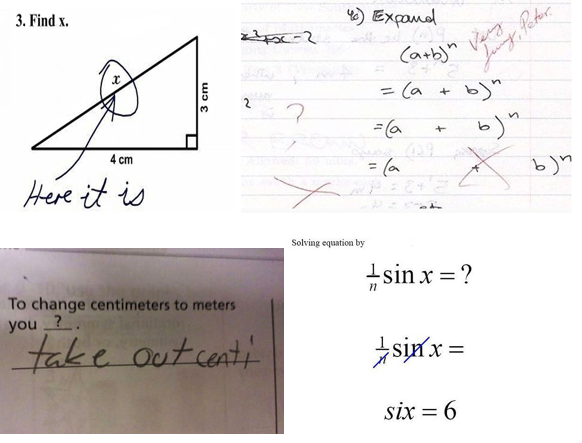 3. Find x.
x
3 cm
4 cm
Here it is
4c) Expand
x² + x - 2
Very funny, Peter.
(a+b)ⁿ
= (a + b)ⁿ
2
?
=(a + b)ⁿ
= (a + b)ⁿ
To change centimeters to meters
you ? .
take out centi
Solving equation by
1/n sin x = ?
1/n sin x =
six = 6